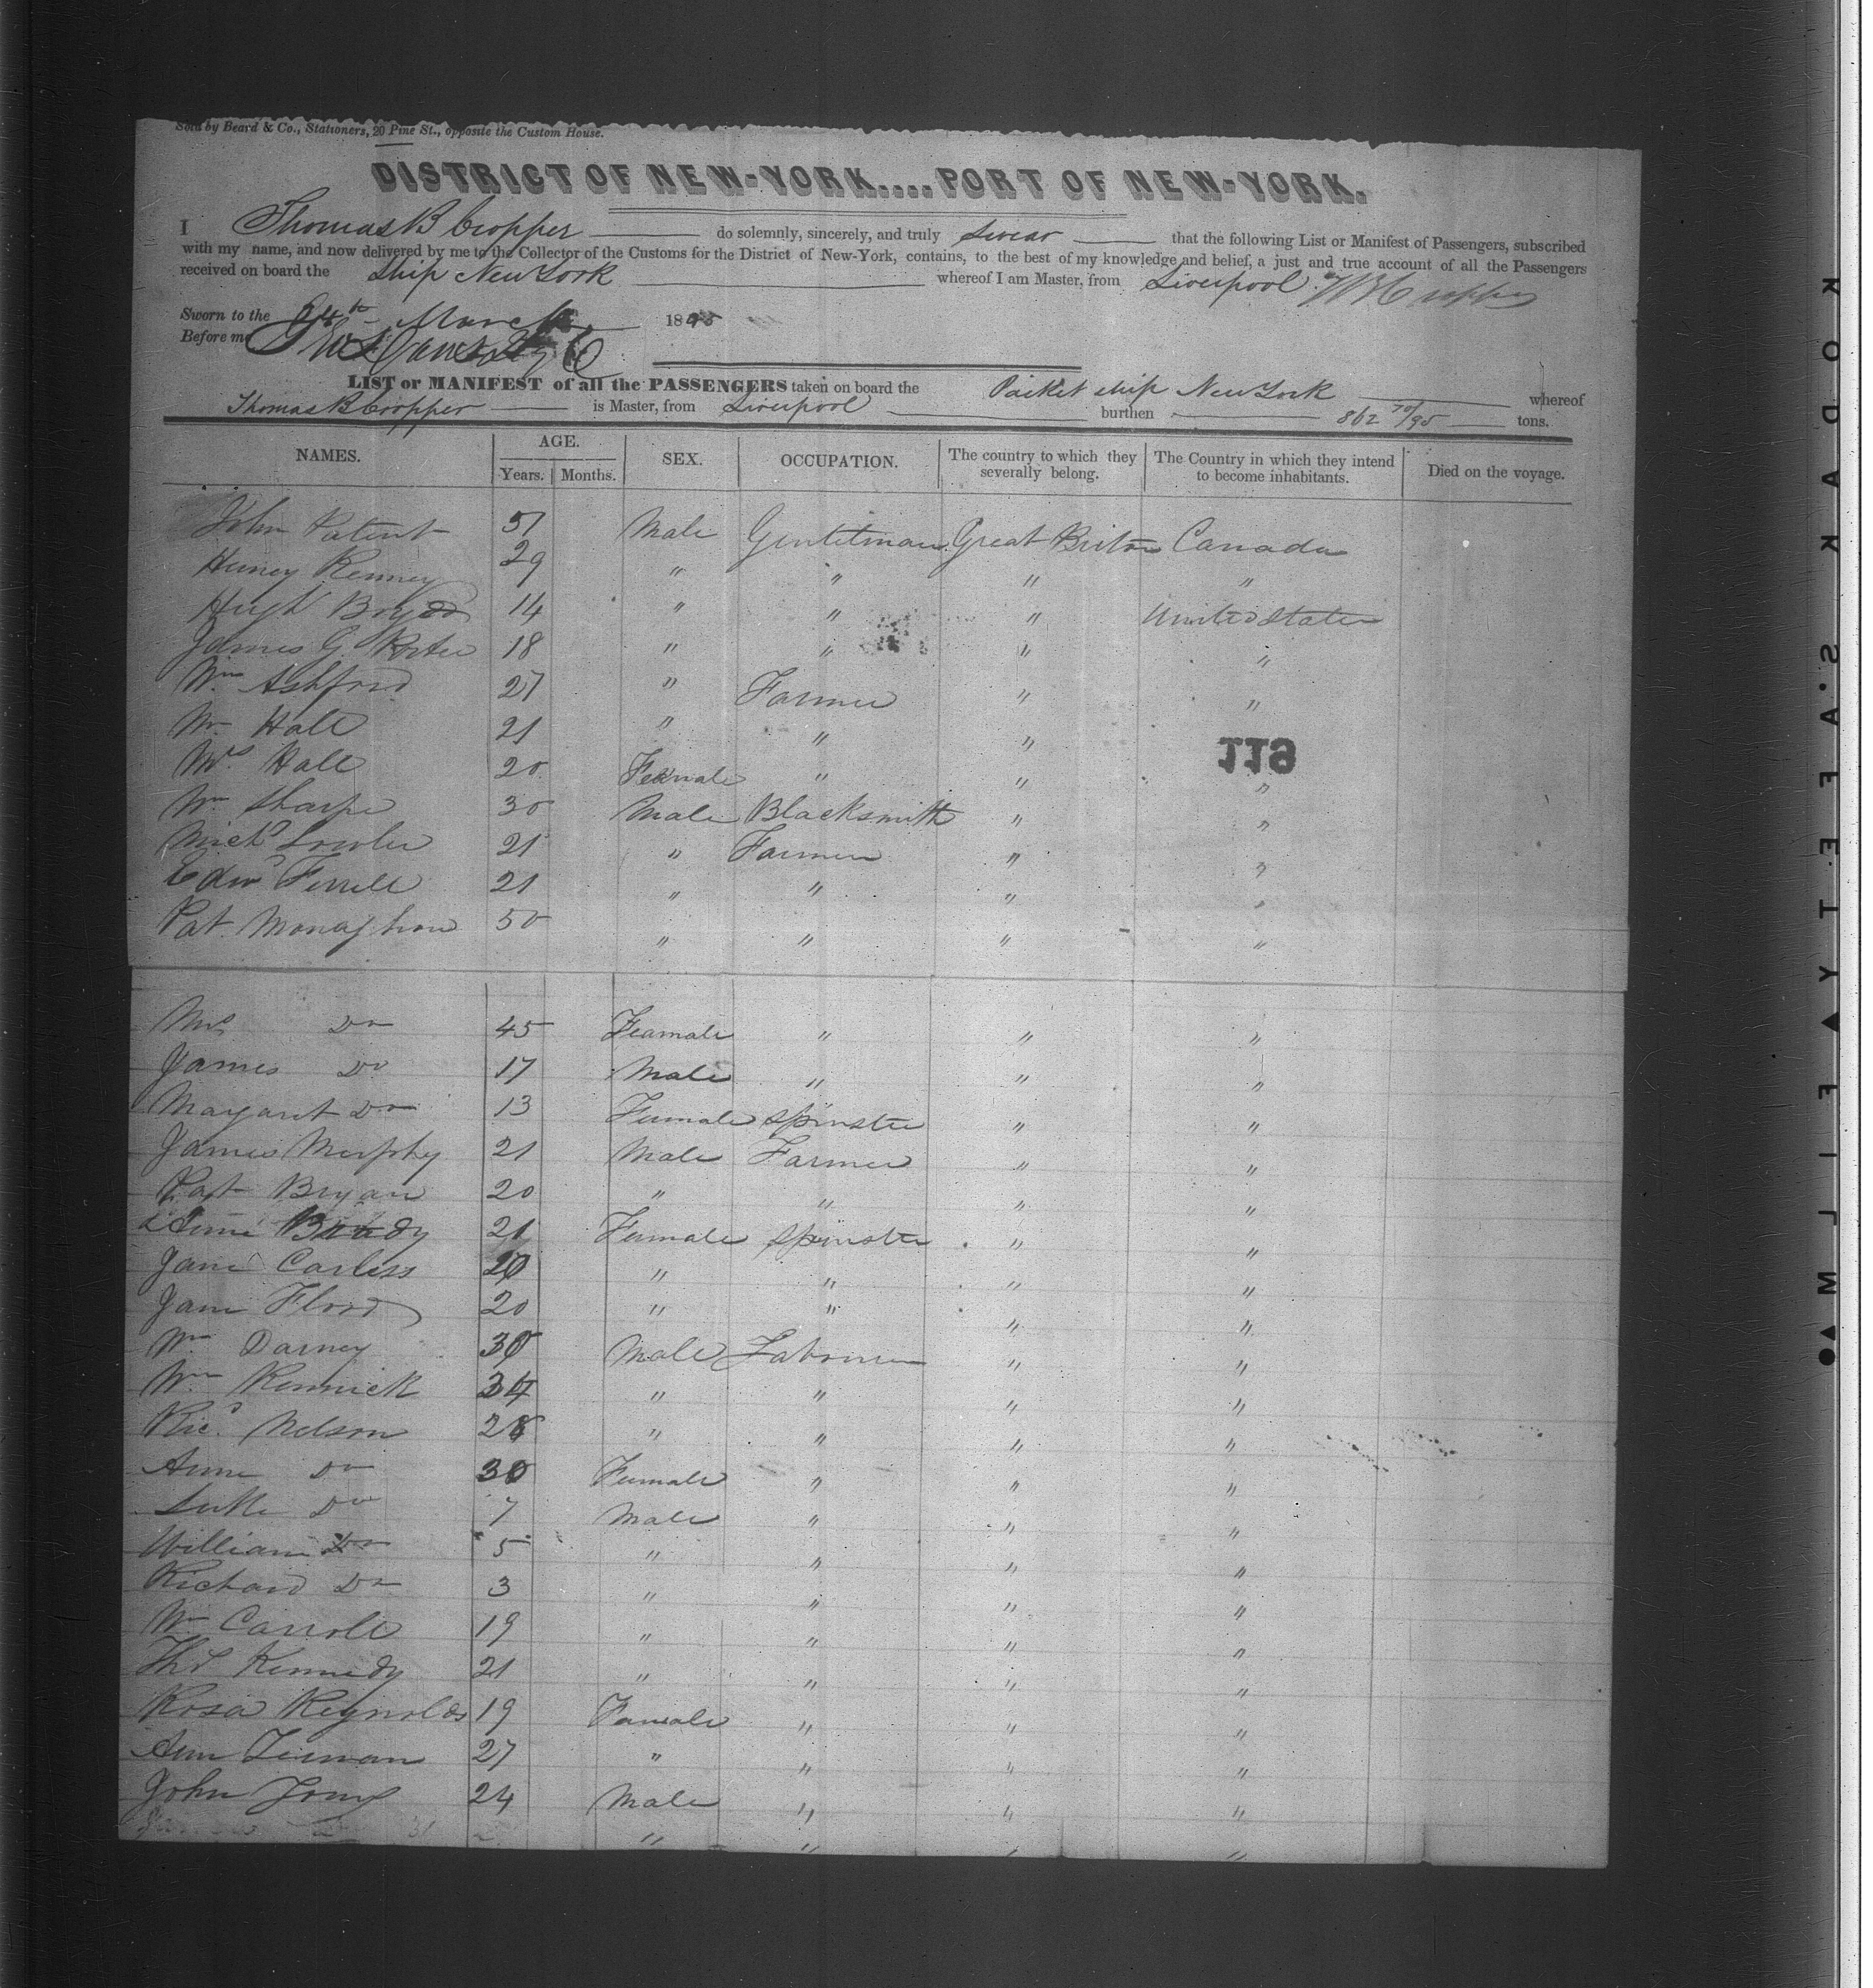 Sold by Beard & Co., Stationers, 20 Pine St., opposite the Custom House.
DISTRICT OF NEW-YORK....PORT OF NEW-YORK.
I Thomas B Cropper do solemnly, sincerely, and truly swear that the following List or Manifest of Passengers, subscribed
with my name, and now delivered by me to the Collector of the Customs for the District of New-York, contains, to the best of my knowledge and belief, a just and true account of all the Passengers
received on board the Ship New York whereof I am Master, from Liverpool T B Cropper
Sworn to the 24th March 1845
Before me
LIST or MANIFEST of all the PASSENGERS taken on board the Packet ship New York whereof
Thomas B Cropper is Master, from Liverpool burthen 862 70/95 tons.
NAMES. AGE. Years. Months. SEX. OCCUPATION. The country to which they severally belong. The Country in which they intend to become inhabitants. Died on the voyage.
John Patent 51 Male Gentleman Great Briton Canada
Henery Kenney 29 " " " "
Hugh Boyed 14 " " " United States
James G. Porter 18 " " " "
Wm Ashford 27 " Farmer " "
Mr Hall 21 " " " "
Mrs Hall 20 Female " " "
119
Wm Sharpe 30 Male Blacksmith " "
Michl Lowler 21 " Farmer " "
Edwd Ferrell 21 " " " "
Pat Monaghan 50 " " " "
Mrs Do 45 Feamale " " "
James Do 17 Male " " "
Margaret Do 13 Female Spinster " "
James Murphy 21 Male Farmer " "
Pat Bryan 20 " " " "
Anne Brady 21 Female Spinster " "
Jane Carless 20 " " " "
Jane Flood 20 " " " "
Wm Darney 30 Male Labourer " "
Wm Kennick 34 " " " "
Ricd Nelson 28 " " " "
Anne Do 30 Female " " "
Luke Do 7 Male " " "
William Do 5 " " " "
Richard Do 3 " " " "
Wm Carroll 19 " " " "
Ths Kennedy 21 " " " "
Rosa Reynolds 19 Female " " "
Ann Tiernan 27 " " " "
John Jones 24 Male " " "
" " " "
KODAK S.A.F.E.T.Y. FILM